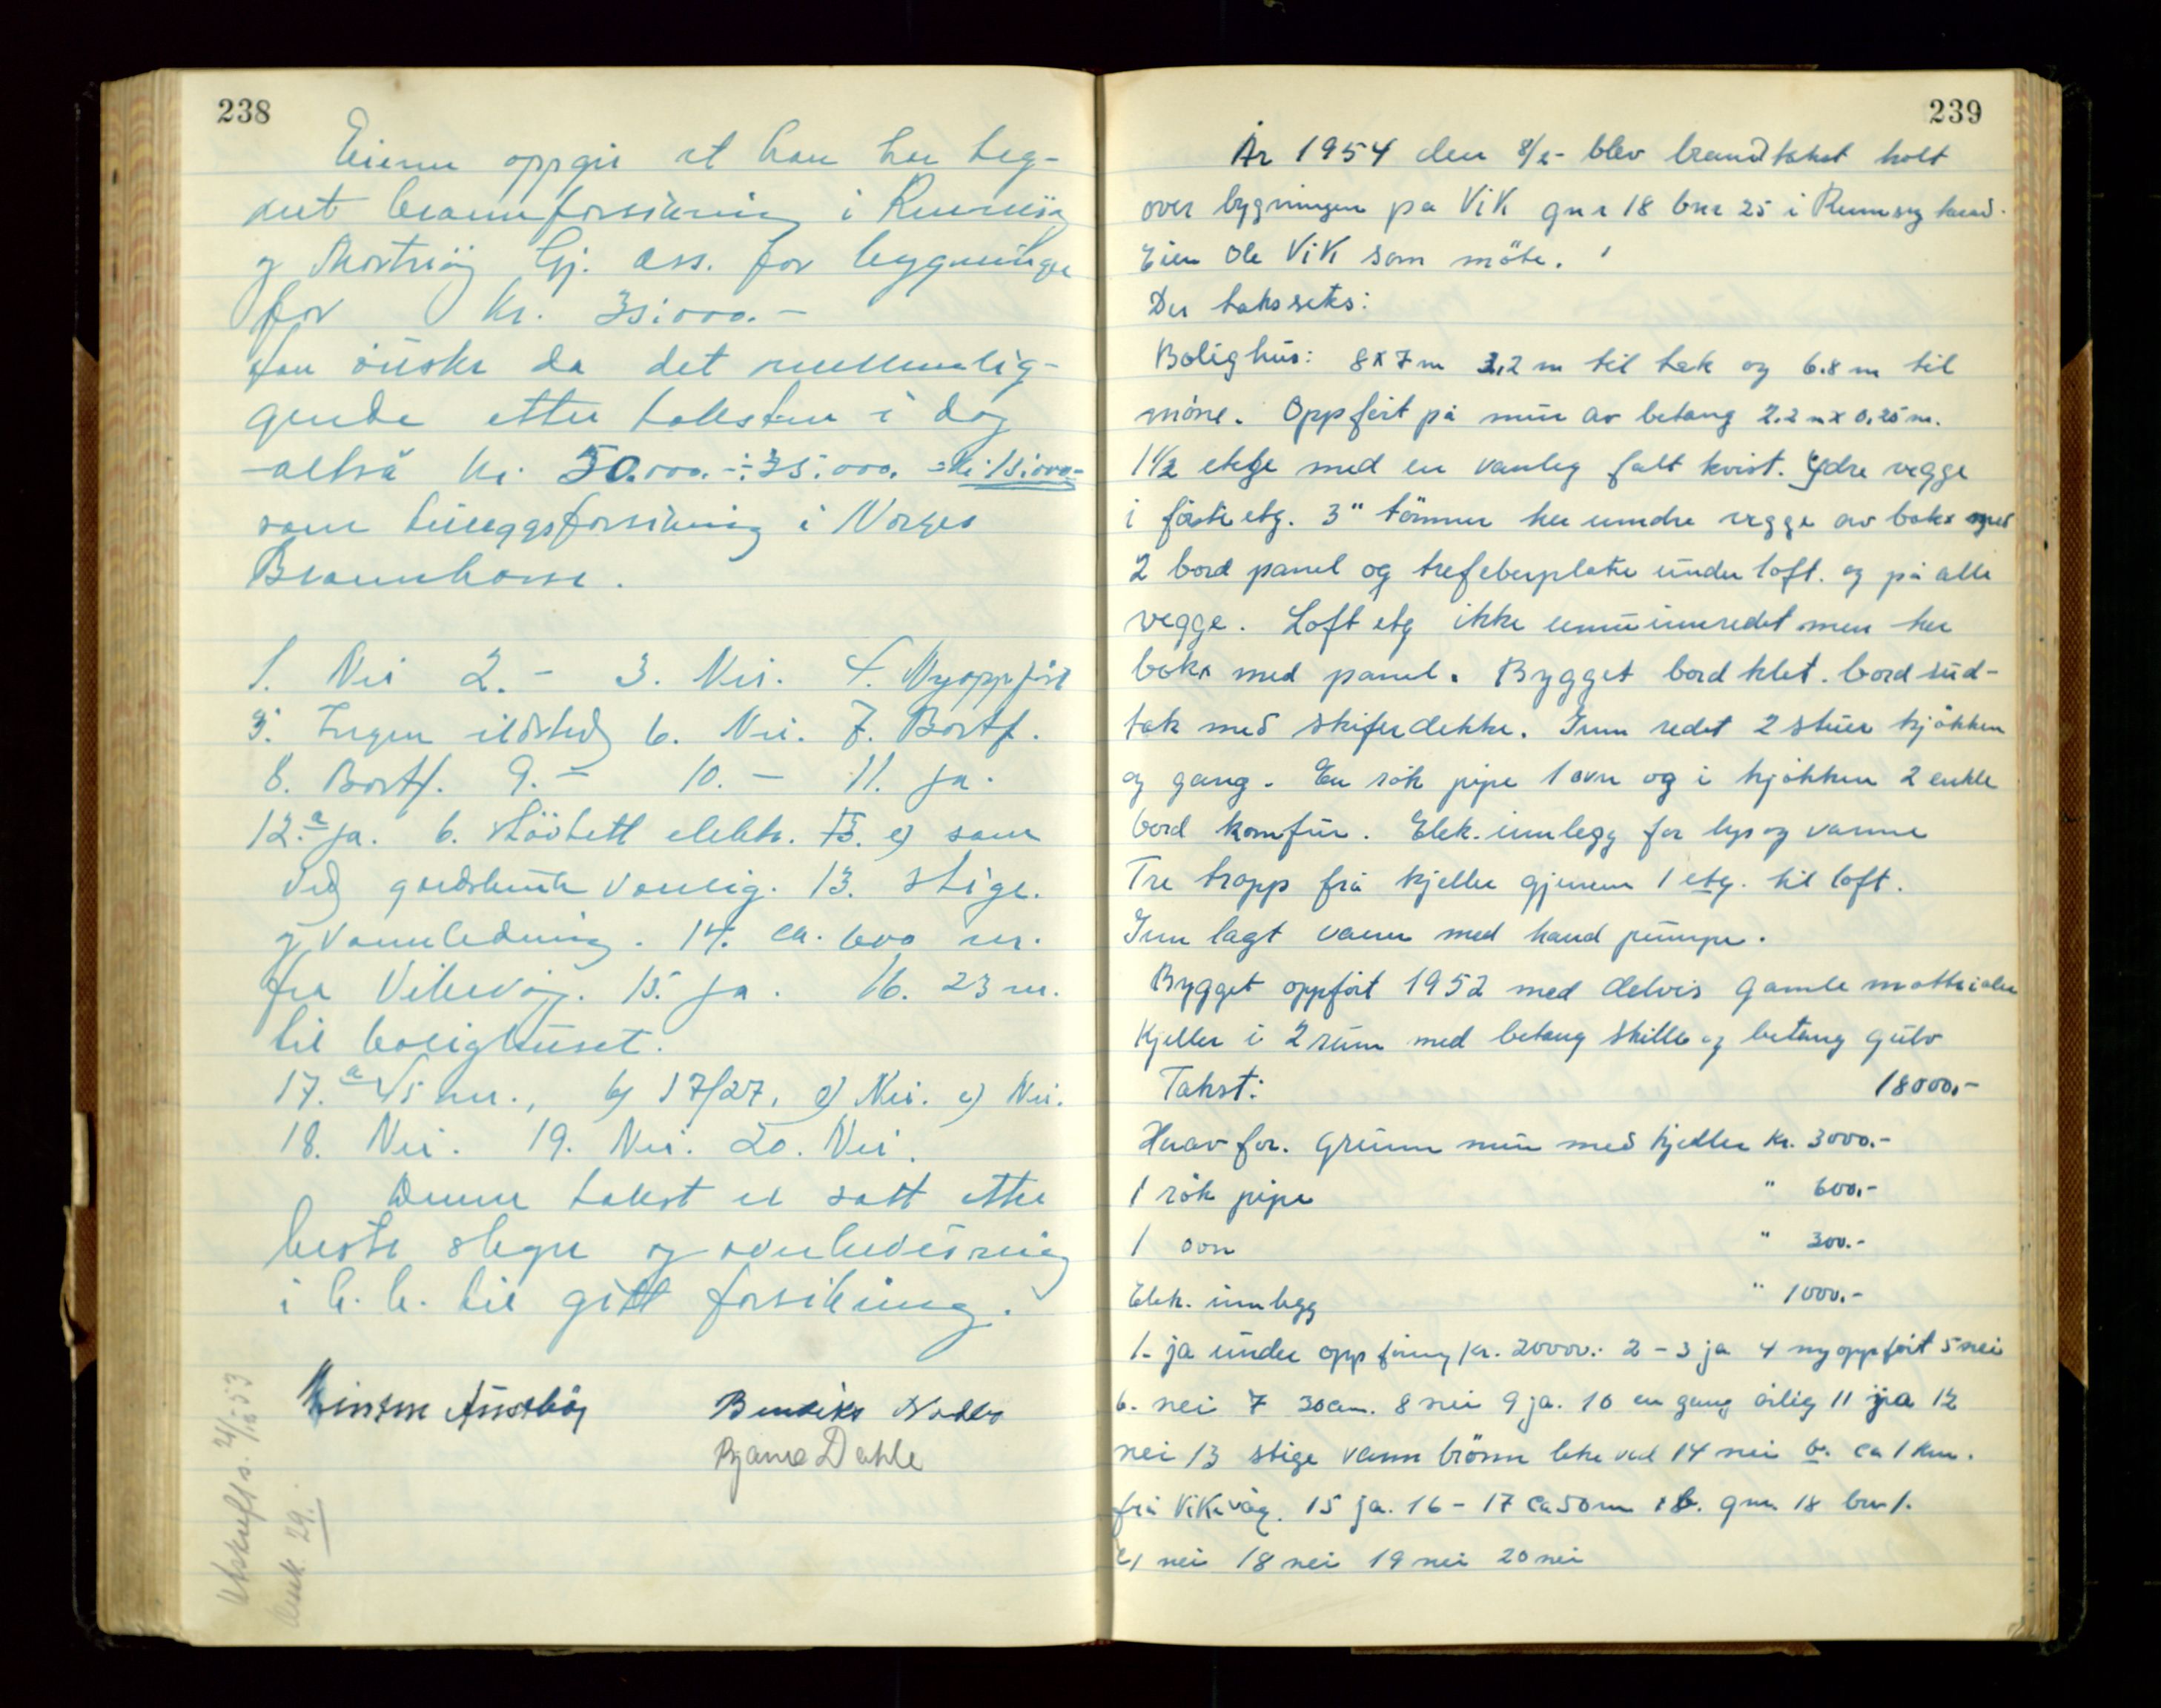 238
Eieren oppgir at han har teg-
net brannforsikring i Rennesøy
og Mosterøy Gj. ass. for bygninger
for kr. 35.000.-
Han ønsker da det mellomlig-
gende etter taksten i dag
altså kr 50.000.- ÷ 35.000. = kr. 15.000.-
som tilleggsforsikring i Norges
Brannkasse.
1. Nei 2. - 3. Nei. 4. Nyoppført
5. Ingen ildsted 6. Nei. 7. Bortf.
8. Bortf. 9. - 10. - 11. ja.
12. a ja. b. Støvtett elektr. c) som
ved gardsbruk vanlig. 13. Stige.
og vannledning. 14. ca. 600 m.
fra Vikevåg. 15. ja. 16. 23 m.
til bolighuset.
17. a 45 m., b) 17/27. c) Nei. Nei.
18. Nei. 19. Nei. 20. Nei.
Denne takst er satt etter
beste skjønn og overbevisning
i h. h. til gitt forsikring.
Bendiks Nådås
Bjarne Dahle
Utskrift s. 21/10-53
239
År 1954 den 8/2- blev brandtakst holt
over bygningen på Vik gnr 18 bnr 25 i Rennesøy herad.
Eier Ole Vik som møte.
Der takseres:
Bolighus: 8x7 m 3,2 m til tak og 6.8 m til
møne. Oppført på mur av betong 2.2 m x 0,25 m.
1 1/2 etage med en vanleg falt kvist. Ydre vegge
i første etg. 3" tømmer her inndre vegge av boks med
2 bord panel og trefeberplater under loft. og på alle
vegge. Loft etg ikke innredet men her
boks med panel. Bygget bord klet. bord sud-
tak med skifer dekke. Inn redet 2 stuer kjøkken
og gang. En røk pipe 1 ovn og i kjøkken 2 enkle
bord komfur. Elek. innlegg for lys og varme
Tre trapp frå kjeller gjenem 1 etg. til loft.
Inn lagt vann med hand pumpe.
Bygget oppført 1952 med delvis gamle matterialer
Kjeller i 2 rum med betong skille og betong gulv
Takst: 18000,-
Herav for. Grunn mur med kjeller kr. 3000.-
1 røk pipe " 600,-
1 ovn " 300.-
Elek. innlegg " 1000.-
1. ja under oppføring kr. 20000.- 2 - 3 ja 4 ny oppført 5 nei
6. nei 7 30 cm. 8 nei 9 ja. 10 en gang årlig 11 ja 12
nei 13 stige vann brønn like ved 14 nei b. ca 1 km.
frå Vikevåg. 15 ja. 16 - 17 ca 50 m b. gnr. 18 bnr 1.
c) nei 18 nei 19 nei 20 nei